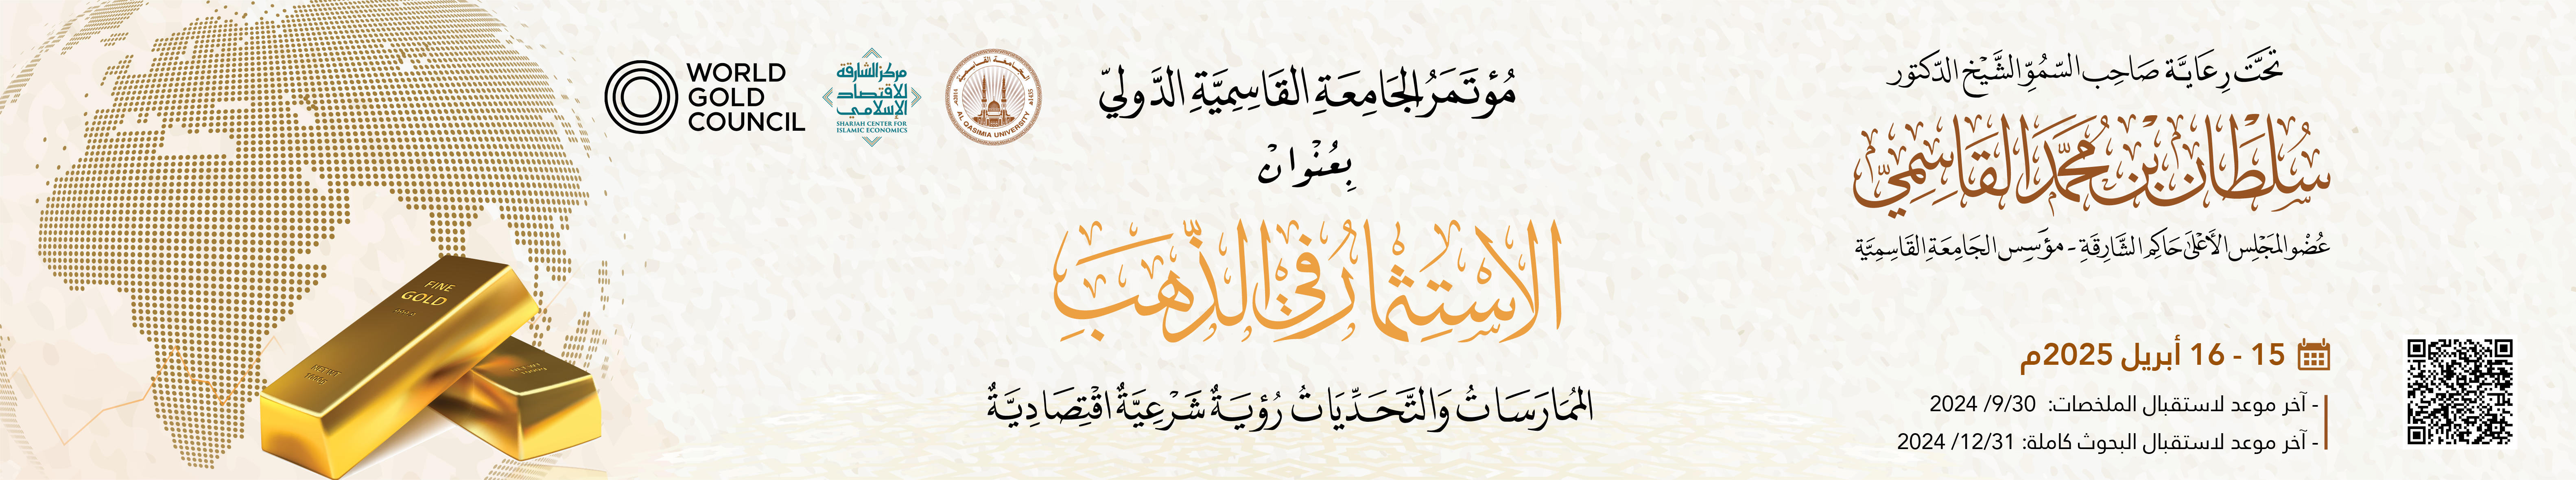 تحَتَّ رِعَايَةِ صَاحِبِ السُّمُوِّ الشَّيْخِ الدّكتور
سُلْطَان بْن مُحَمَّد القَاسِمِيّ
عُضْو المَجْلِس الأَعْلَىٰ حَاكِم الشَّارِقَةِ - مؤَسِس الجَامِعَةِ القَاسِمِيَّة
15 - 16 أبريل 2025م
- آخر موعد لاستقبال الملخصات: 2024 /9/30
- آخر موعد لاستقبال البحوث كاملة: 2024 /12/31
مُؤتَمَرُ الجَامِعَةِ القَاسِمِيَّةِ الدَّوليّ
بِعُنْوانْ
الاسْتِثْمارُ في الذَّهَبِ
المُمَارَسَاتُ وَالتَّحَدِّيَاتُ رُؤيَةٌ شَرْعِيَّةٌ اقْتِصَادِيَّةٌ
الجامعة القاسمية
AL QASIMIA UNIVERSITY
مركز الشارقة
للاقتصاد
الإسلامي
SHARJAH CENTER FOR
ISLAMIC ECONOMICS
WORLD
GOLD
COUNCIL
FINE
GOLD